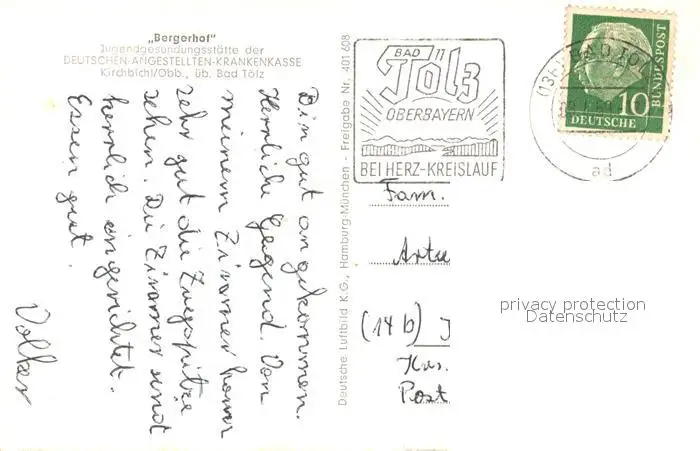 „Bergerhof"
Jugendgesundungsstätte der
DEUTSCHEN-ANGESTELLTEN-KRANKENKASSE
Kirchbichl/Obb., üb. Bad Tölz
Bin gut angekommen.
Herrliche Gegend. Von
meinem Zimmer kann
sehr gut die Zugspitze
sehen. Die Zimmer sind
herrlich eingerichtet.
Essen gut.
Volker
Deutsche Luftbild K.G., Hamburg-München - Freigabe Nr. 401 608
BAD
Tölz
OBERBAYERN
BEI HERZ-KREISLAUF
BAD TÖ
ad
BUNDESPOST
10
DEUTSCHE
Fam.
Artu
(14b) J
Krs.
Post
privacy protection
Datenschutz